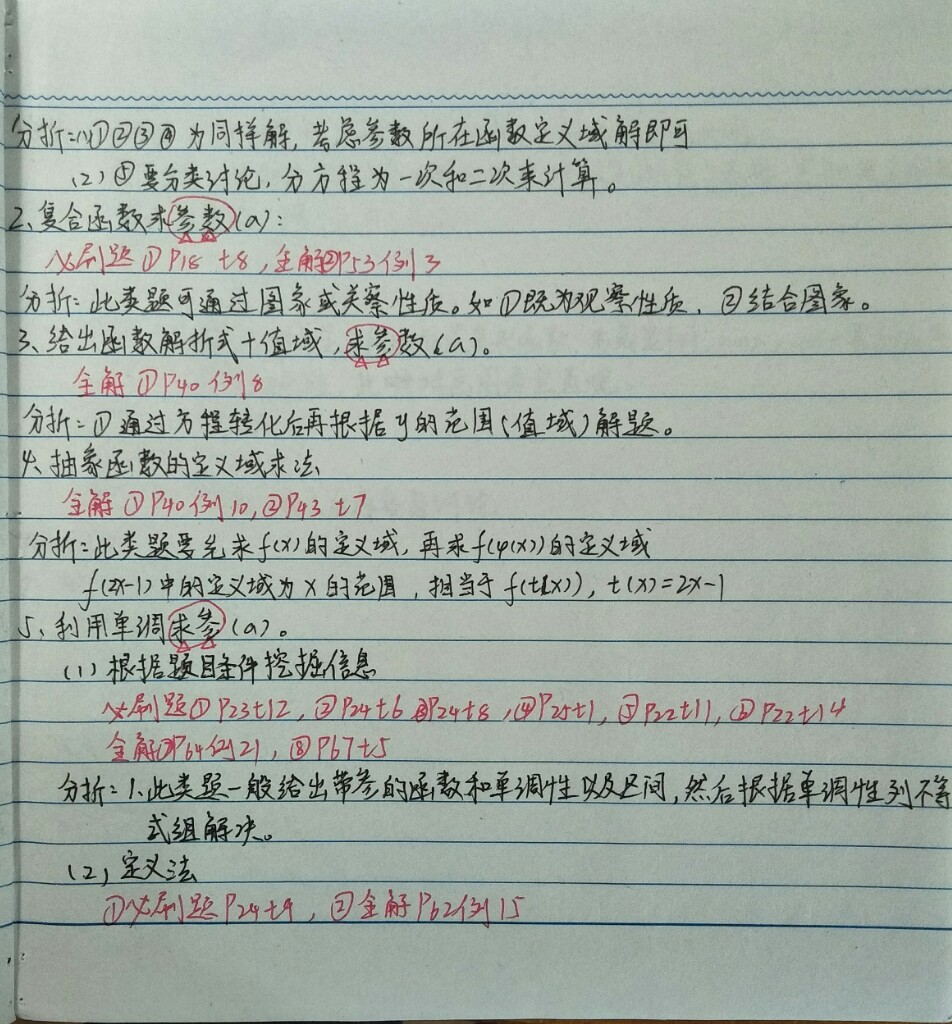 分析:(1)①②③④为同样解,考虑参数所在函数定义域解即可
(2)⑤要分类讨论,分方程为一次和二次来计算。
2、复合函数求参数(a):
必刷题①P18 t8,全解②P53例3
分析:此类题可通过图象或关察性质。如①既为观察性质、②结合图象。
3、给出函数解折式+值域,求参数(a)。
全解①P40例8
分析:①通过方程转化后再根据y的范围(值域)解题。
4、抽象函数的定义域求法
全解①P40例10,②P43 t7
分析:此类题要先求f(x)的定义域,再求f(φ(x))的定义域
f(2x-1)中的定义域为x的范围,相当于f(t(x)),t(x)=2x-1
5、利用单调求参(a)。
(1)根据题目条件挖掘信息
必刷题①P23t12,②P24t6 ③P24t8,④P25t1,⑤P22t11,⑥P22t14
全解⑦P64例21,⑧P67t5
分析:1.此类题一般给出带参的函数和单调性以及区间,然后根据单调性列不等
式组解决。
(2)定义法
①必刷题P24t9,②全解P62例15